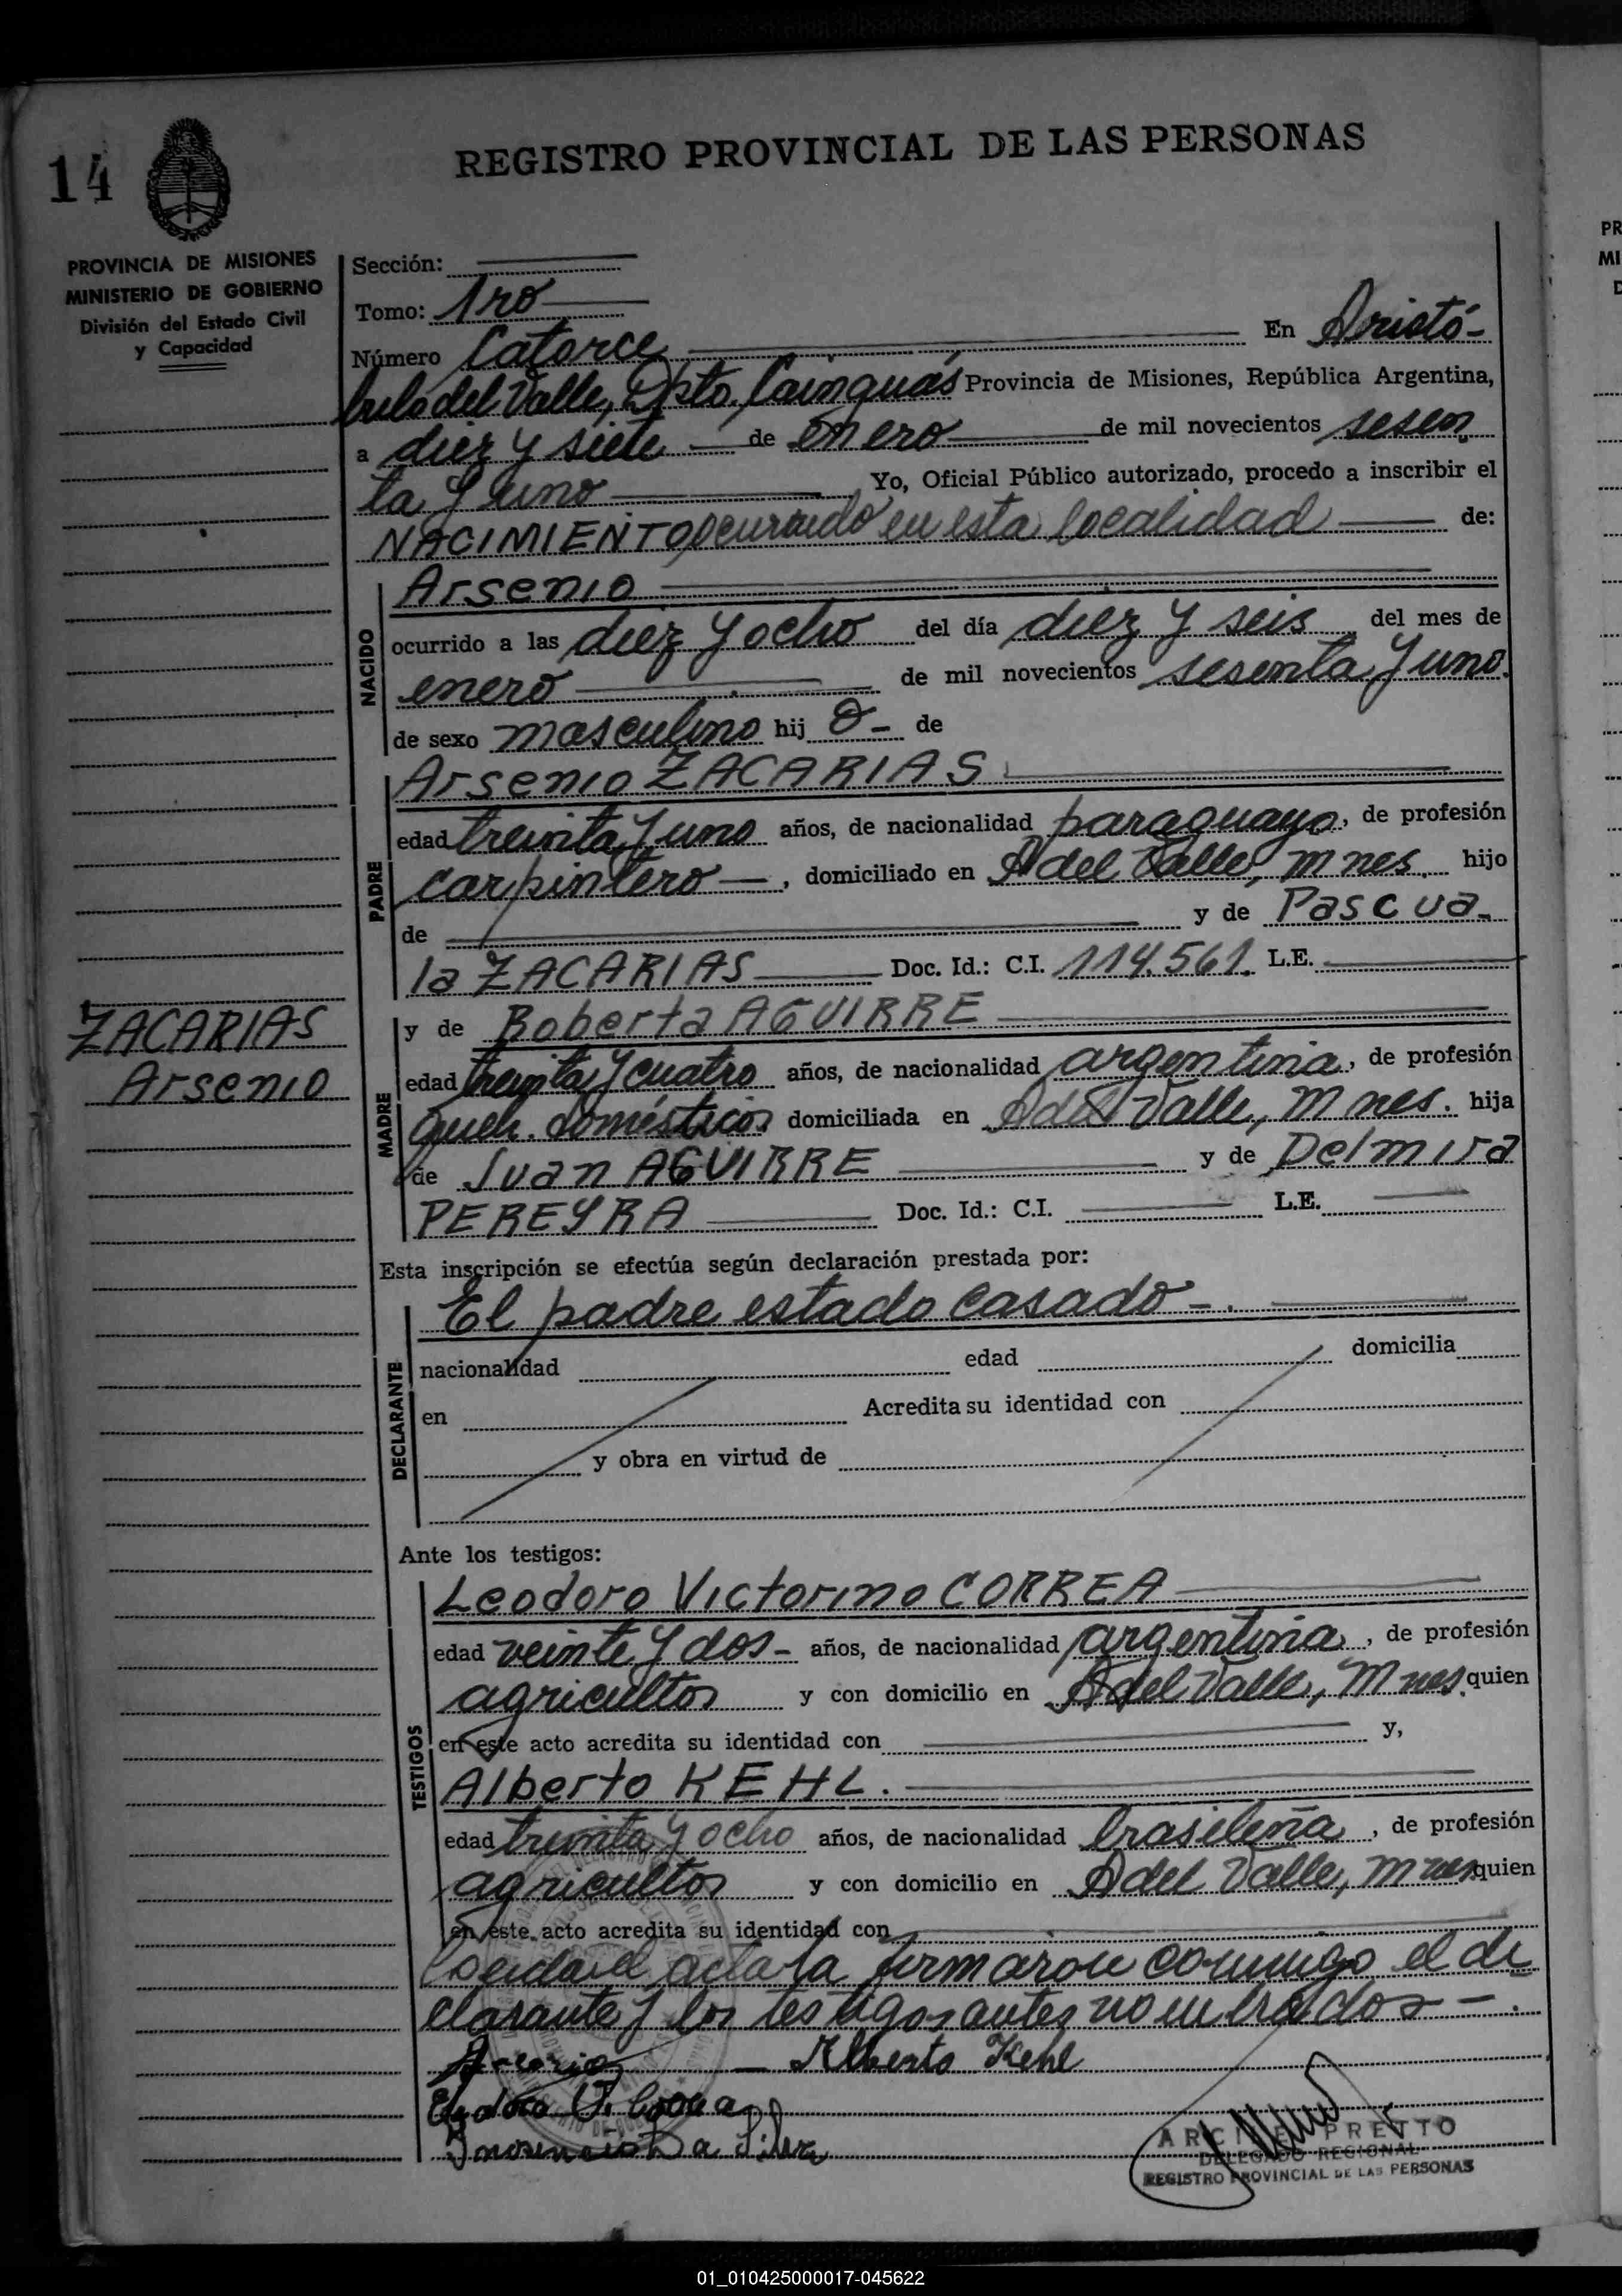 14
REGISTRO PROVINCIAL DE LAS PERSONAS
PROVINCIA DE MISIONES
MINISTERIO DE GOBIERNO
División del Estado Civil
y Capacidad
Sección:
Tomo: 1ro
Número Catorce En Aristó-
bulo del Valle, Dpto. Cainguás Provincia de Misiones, República Argentina,
a diez y siete de enero de mil novecientos sesen
ta y uno Yo, Oficial Público autorizado, procedo a inscribir el
NACIMIENTO ocurrido en esta localidad de:
NACIDO
Arsenio
ocurrido a las diez y ocho del día diez y seis del mes de
enero de mil novecientos sesenta y uno.
de sexo masculino hij o- de
PADRE
Arsenio ZACARIAS
edad treinta y uno años, de nacionalidad paraguayo, de profesión
carpintero, domiciliado en A del Valle, Mnes. hijo
de y de Pascua-
la ZACARIAS Doc. Id.: C.I. 114.561. L.E.
ZACARIAS
Arsenio
MADRE
y de Roberta AGUIRRE
edad treinta y cuatro años, de nacionalidad argentina, de profesión
queh. domésticos domiciliada en A del Valle, Mnes. hija
de Juan AGUIRRE y de Delmira
PEREYRA Doc. Id.: C.I. L.E.
Esta inscripción se efectúa según declaración prestada por:
DECLARANTE
El padre estado casado-.
nacionalidad edad domicilia
en Acredita su identidad con
y obra en virtud de
Ante los testigos:
TESTIGOS
Leodoro Victorino CORREA
edad veinte y dos- años, de nacionalidad argentina, de profesión
agricultor y con domicilio en A del Valle, Mnes. quien
en este acto acredita su identidad con y,
Alberto KEHL.
edad treinta y ocho años, de nacionalidad brasileña, de profesión
agricultor y con domicilio en A del Valle, Mnes. quien
en este acto acredita su identidad con
Leida el acta la firmaron conmigo el de
clarante y los testigos antes nombrados-.
Alberto Kehl
PRETTO
DELEGADO REGIONAL
REGISTRO PROVINCIAL DE LAS PERSONAS
PR
MI
D
01_010425000017-045622